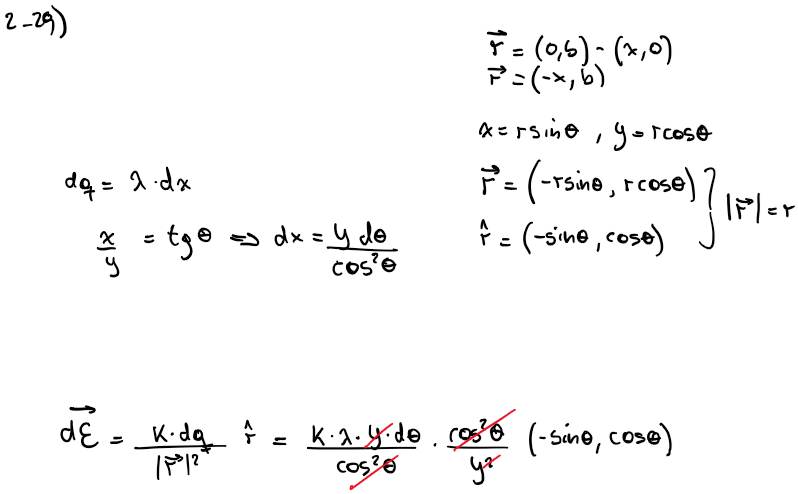 2-29)
r⃗ = (0,b) - (x,0)
r⃗ = (-x, b)
x = r sinθ , y = r cosθ
dq = λ·dx
r⃗ = (-r sinθ, r cosθ)
r̂ = (-sinθ, cosθ)
|r⃗| = r
x/y = tgθ ⇒ dx = y dθ / cos²θ
dE⃗ = K·dq / |r⃗|² r̂ = K·λ·y·dθ / cos²θ · cos²θ / y² (-sinθ, cosθ)